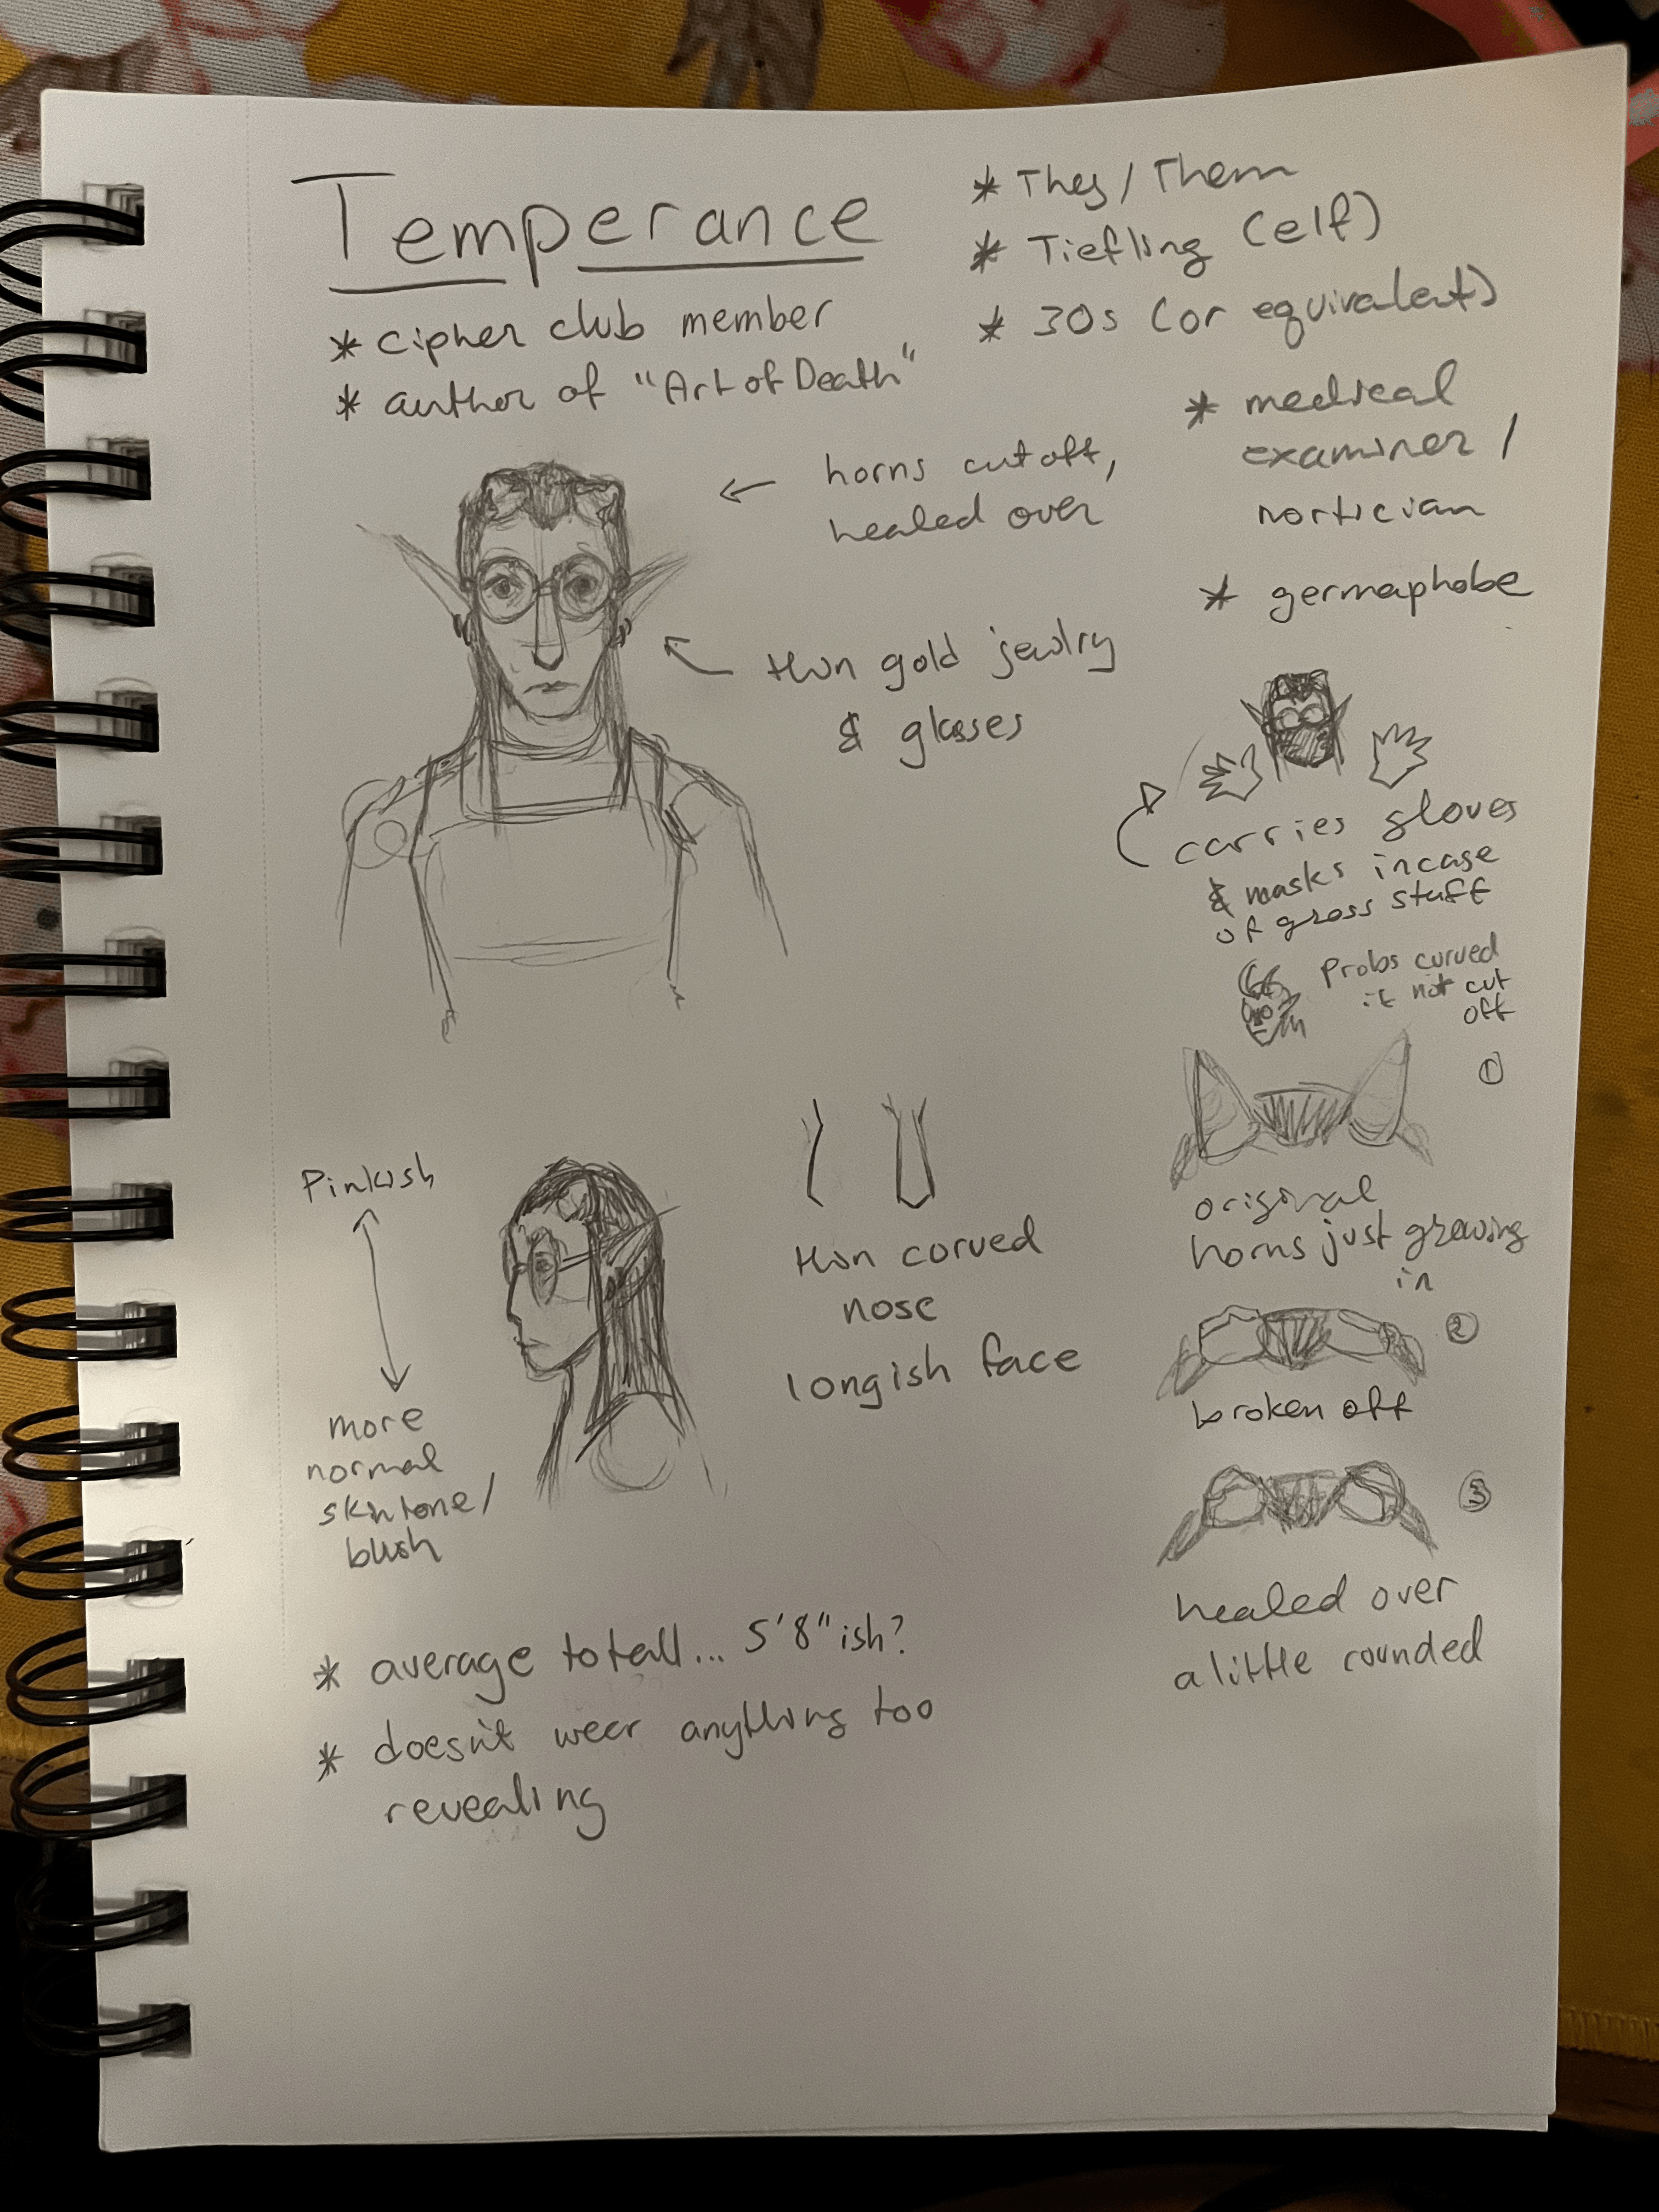 Temperance
* cipher club member
* author of "Art of Death"
* They / Them
* Tiefling (elf)
* 30s (or equivalent)
* medical
examiner /
mortician
* germaphobe
horns cut off,
healed over
thin gold jewlry
& glasses
carries gloves
& masks incase
of gross stuff
Probs curved
if not cut
off
1
original
horns just growing
in
2
broken off
3
healed over
a little rounded
Pinkish
more
normal
skintone /
blush
thin curved
nose
longish face
* average to tall... 5'8" ish?
* doesn't wear anything too
revealing